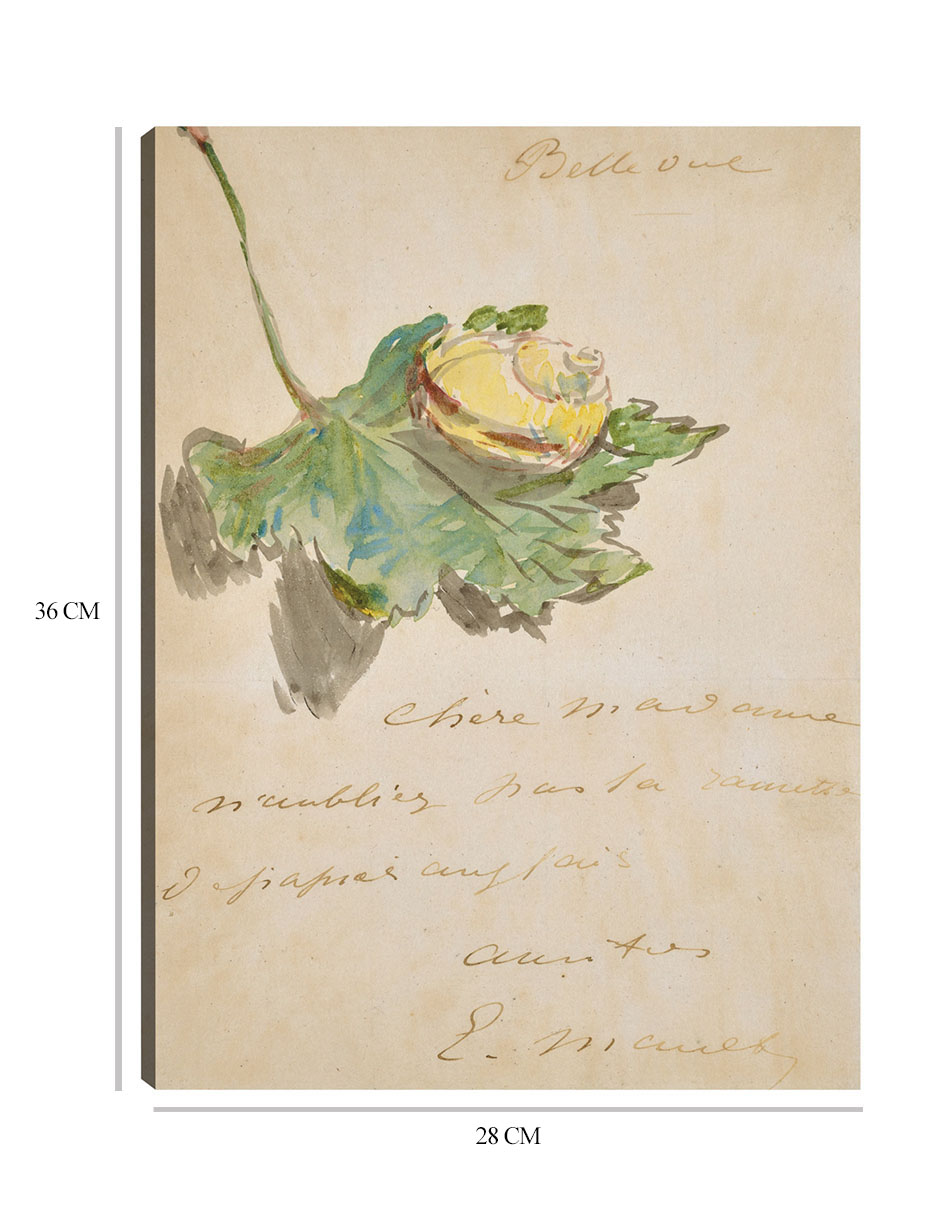 Bellevue
36 CM
chère madame
n'oubliez pas la ramette
de papier anglais
amitiés
E. Manet
28 CM